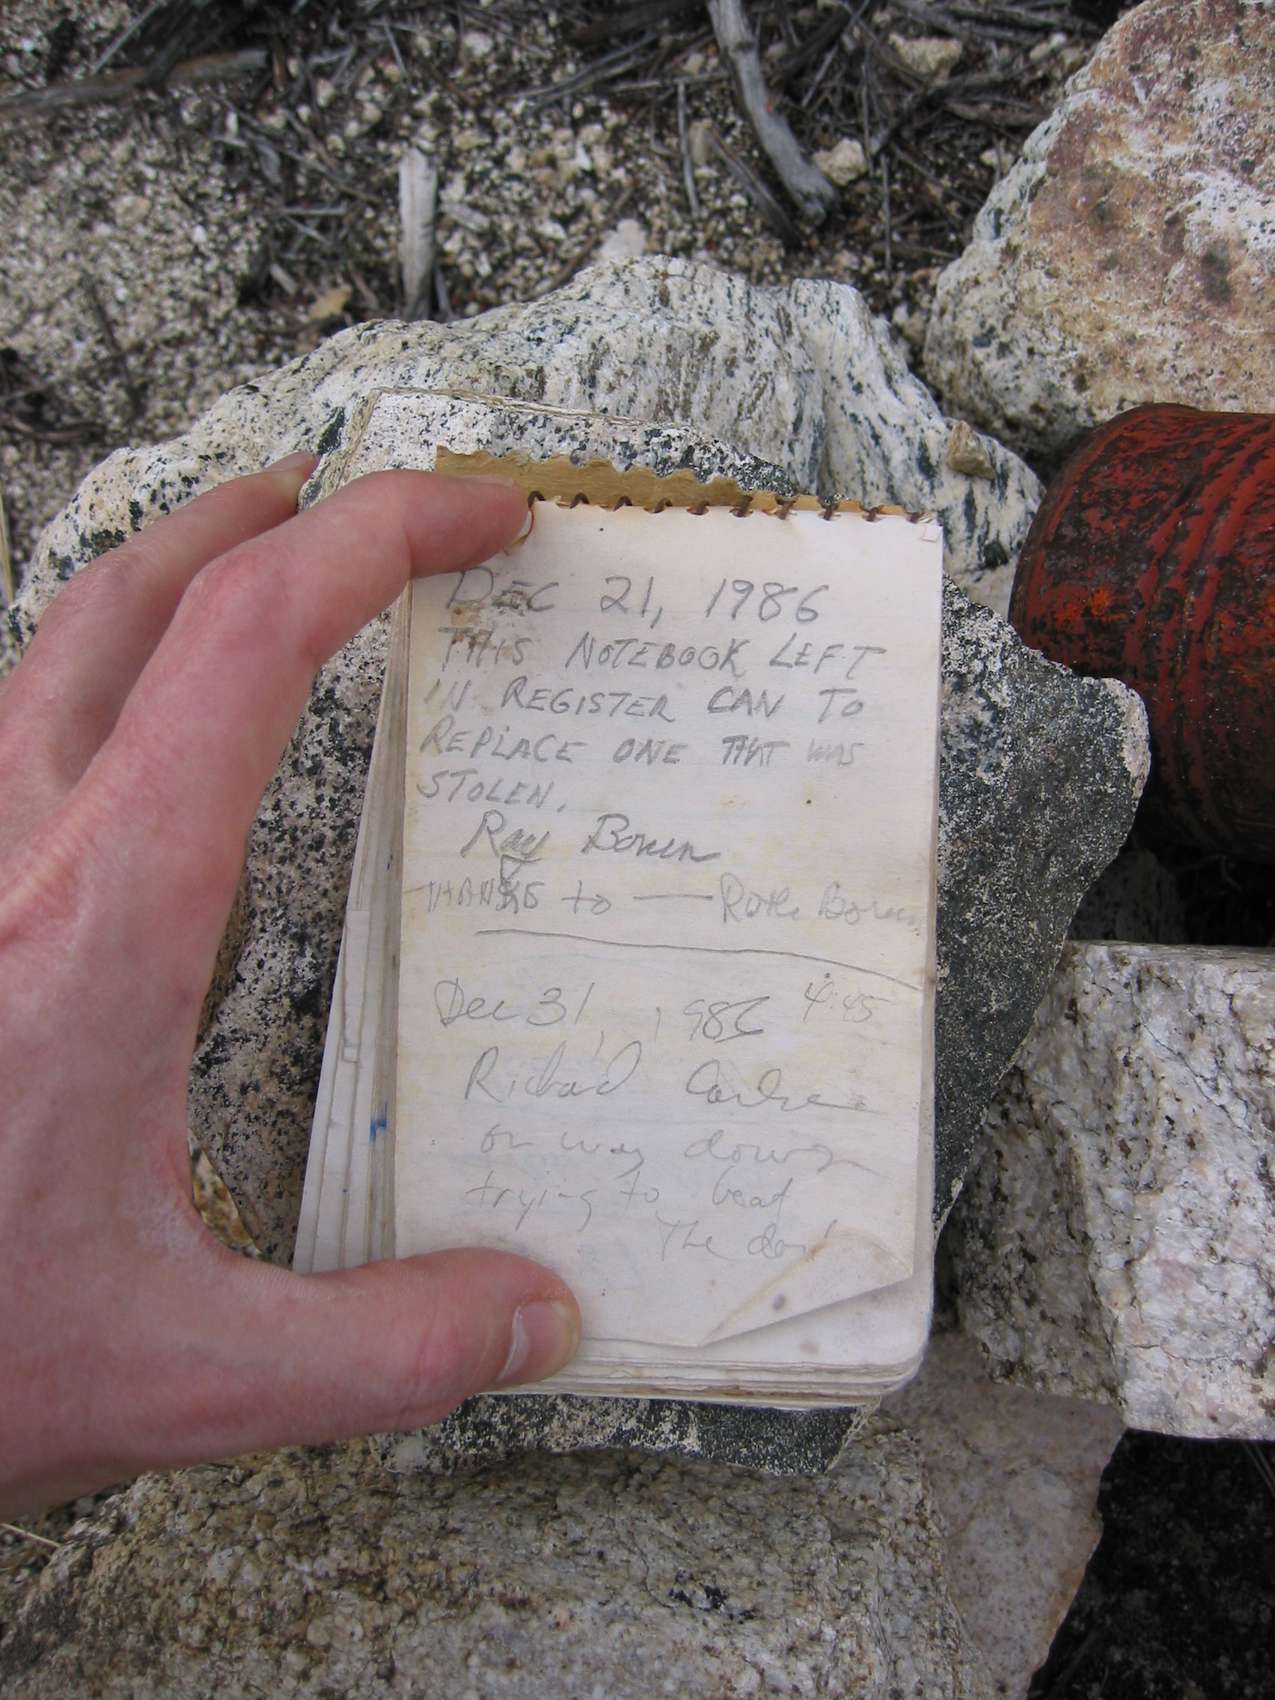 DEC 21, 1986
THIS NOTEBOOK LEFT
IN REGISTER CAN TO
REPLACE ONE THAT WAS
STOLEN.
Ray
THANKS to —
Dec 31, 1986 4:45
Richard
on way down
trying to beat
The